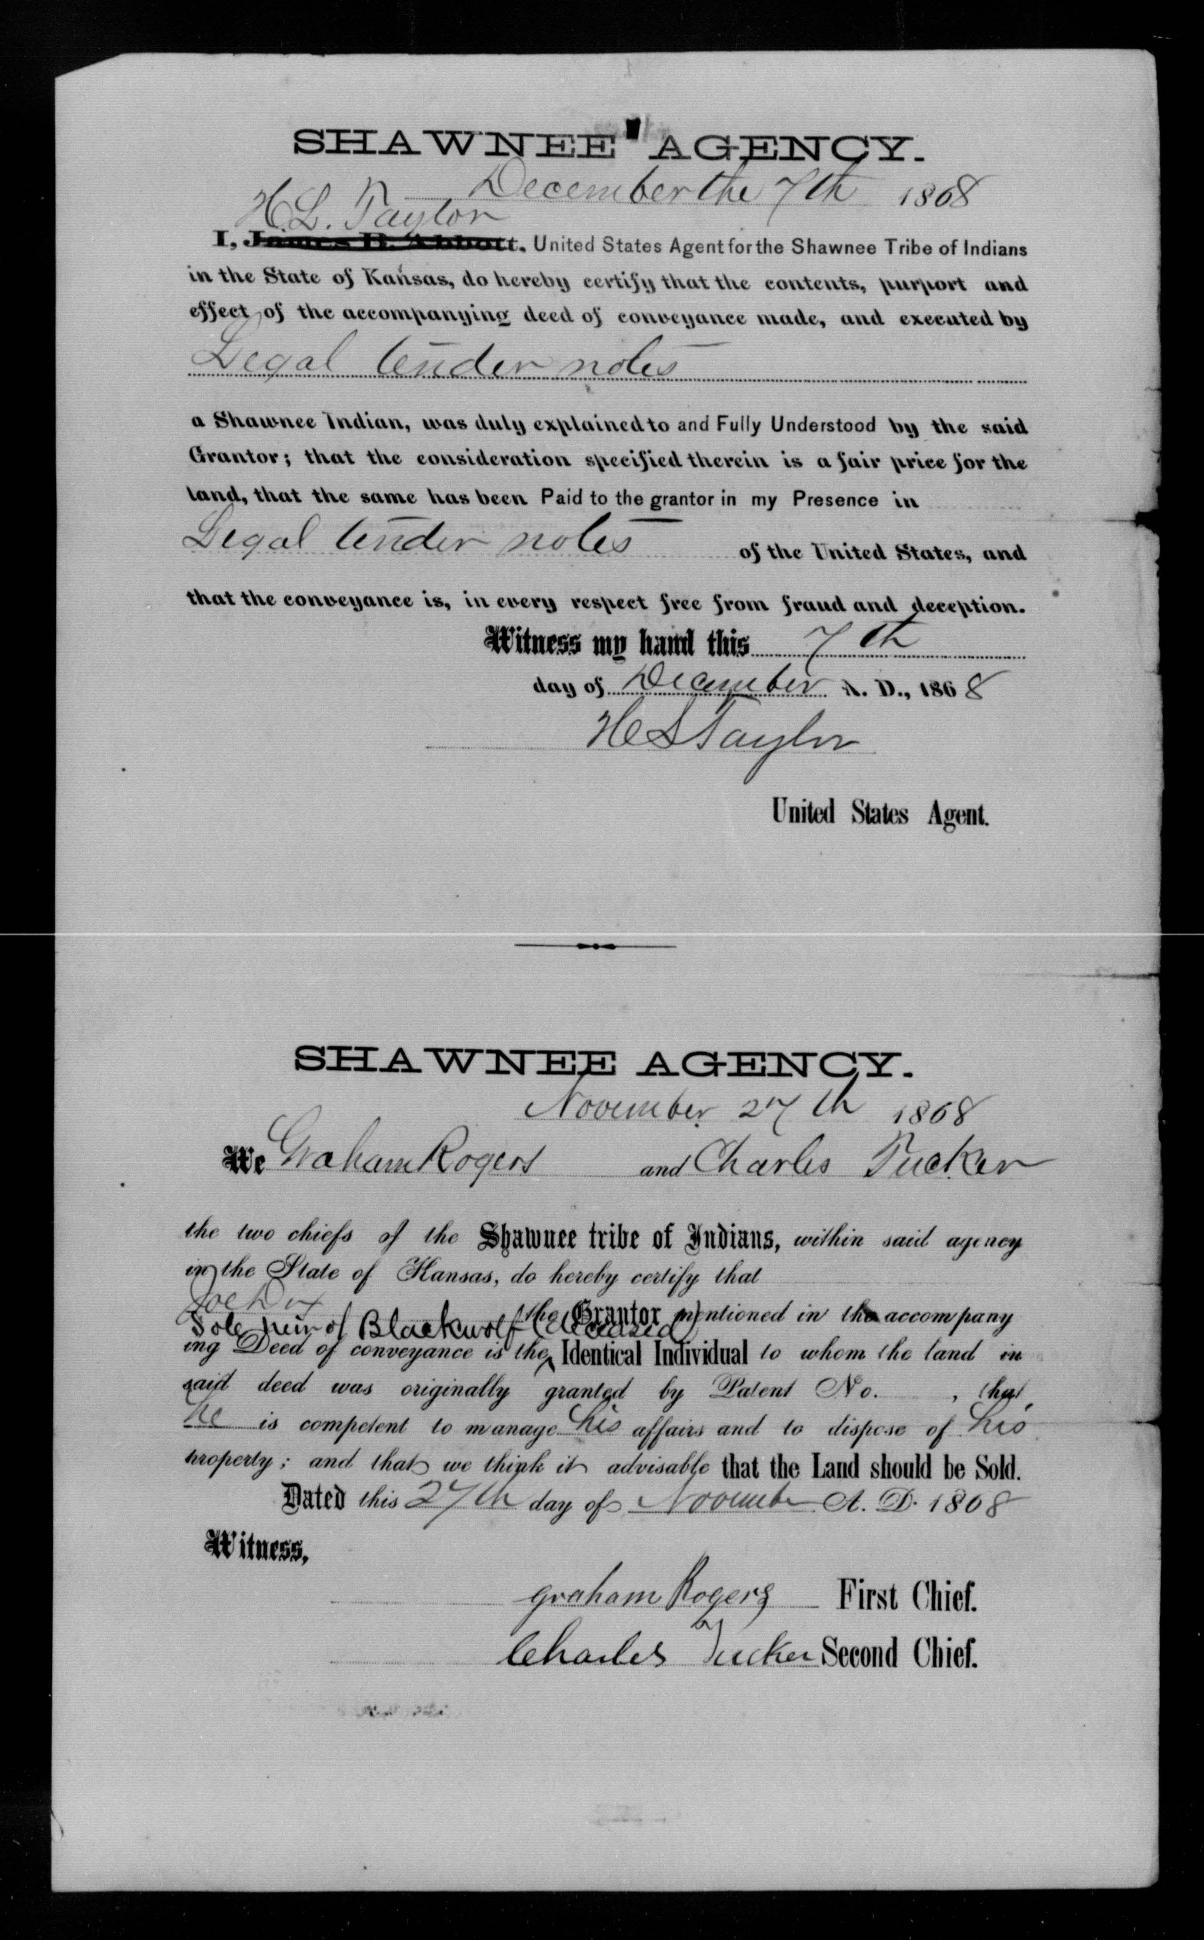 SHAWNEE AGENCY.
December the 7th 1868
H.L. Taylor
I, James B. Abbott. United States Agent for the Shawnee Tribe of Indians
in the State of Kansas, do hereby certify that the contents, purport and
effect of the accompanying deed of conveyance made, and executed by
Legal tender notes
a Shawnee Indian, was duly explained to and Fully Understood by the said
Grantor; that the consideration specified therein is a fair price for the
land, that the same has been Paid to the grantor in my Presence in
Legal tender notes of the United States, and
that the conveyance is, in every respect free from fraud and deception.
Witness my hand this 7th
day of December A. D., 1868
H L Taylor
United States Agent.
SHAWNEE AGENCY.
November 27th 1868
We Graham Rogers and Charles Tucker
the two chiefs of the Shawnee tribe of Indians, within said agency
in the State of Kansas, do hereby certify that
Joe Dix the Grantor mentioned in the accompany
Sole heir of Blackwolf (deceased)
ing Deed of conveyance is the Identical Individual to whom the land in
said deed was originally granted by Patent No. , that
he is competent to manage his affairs and to dispose of his
property; and that we think it advisable that the Land should be Sold.
Dated this 27th day of November A. D. 1868
Witness,
Graham Rogers First Chief.
Charles Tucker Second Chief.